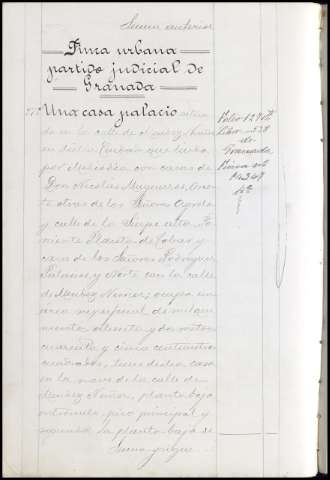 Suma anterior
Finca urbana
partido judicial de
Granada
Una casa palacio situa-
da en la calle de
en dicha Ciudad que linda
por Mediodia con casas de
Don Nicolás
te otras de los Señores
y calle de la
niente Placeta de Tobar y
casa de los Señores Rodriguez
y Norte con la calle
de Mendez Nuñez; ocupa un
area superficial de mil qui-
nientos ochenta y dos metros
cuarenta y cinco centimetros
cuadrados, tiene dicha casa
en la nave de la calle de
Mendez Nuñez, planta baja
entresuelo, piso principal y
segundo la planta baja se
Suma y sigue
Folio 129 vto
Libro 538
de
Granada
Finca nº
14367